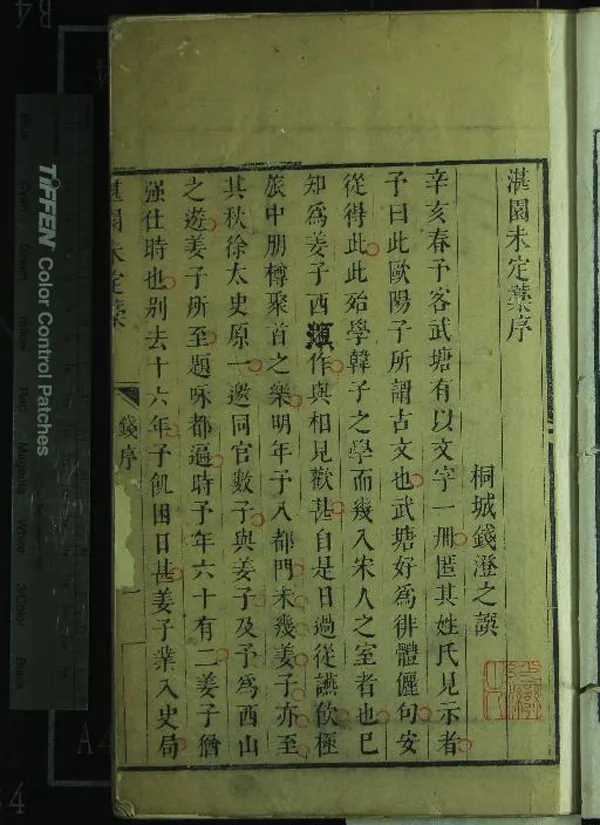 湛園未定藁序
桐城錢澄之譔
辛亥春予客武塘有以文字一冊匿其姓氏見示者
予曰此歐陽子所謂古文也武塘好為俳體儷句安
從得此此殆學韓子之學而幾入宋人之室者也已
知為姜子西溟作與相見歡甚自是日過從讌飲極
旅中朋樽聚首之樂明年予入都門未幾姜子亦至
其秋徐太史原一邀同官數子與姜子及予為西山
之遊姜子所至題咏都遍時予年六十有二姜子猶
强仕時也別去十六年予飢困日甚姜子業入史局
湛園未定藁
錢序
一
TIFFEN Color Control Patches
Blue
Cyan
Green
Yellow
Red
Magenta
White
3/Color
Black
B4
A4